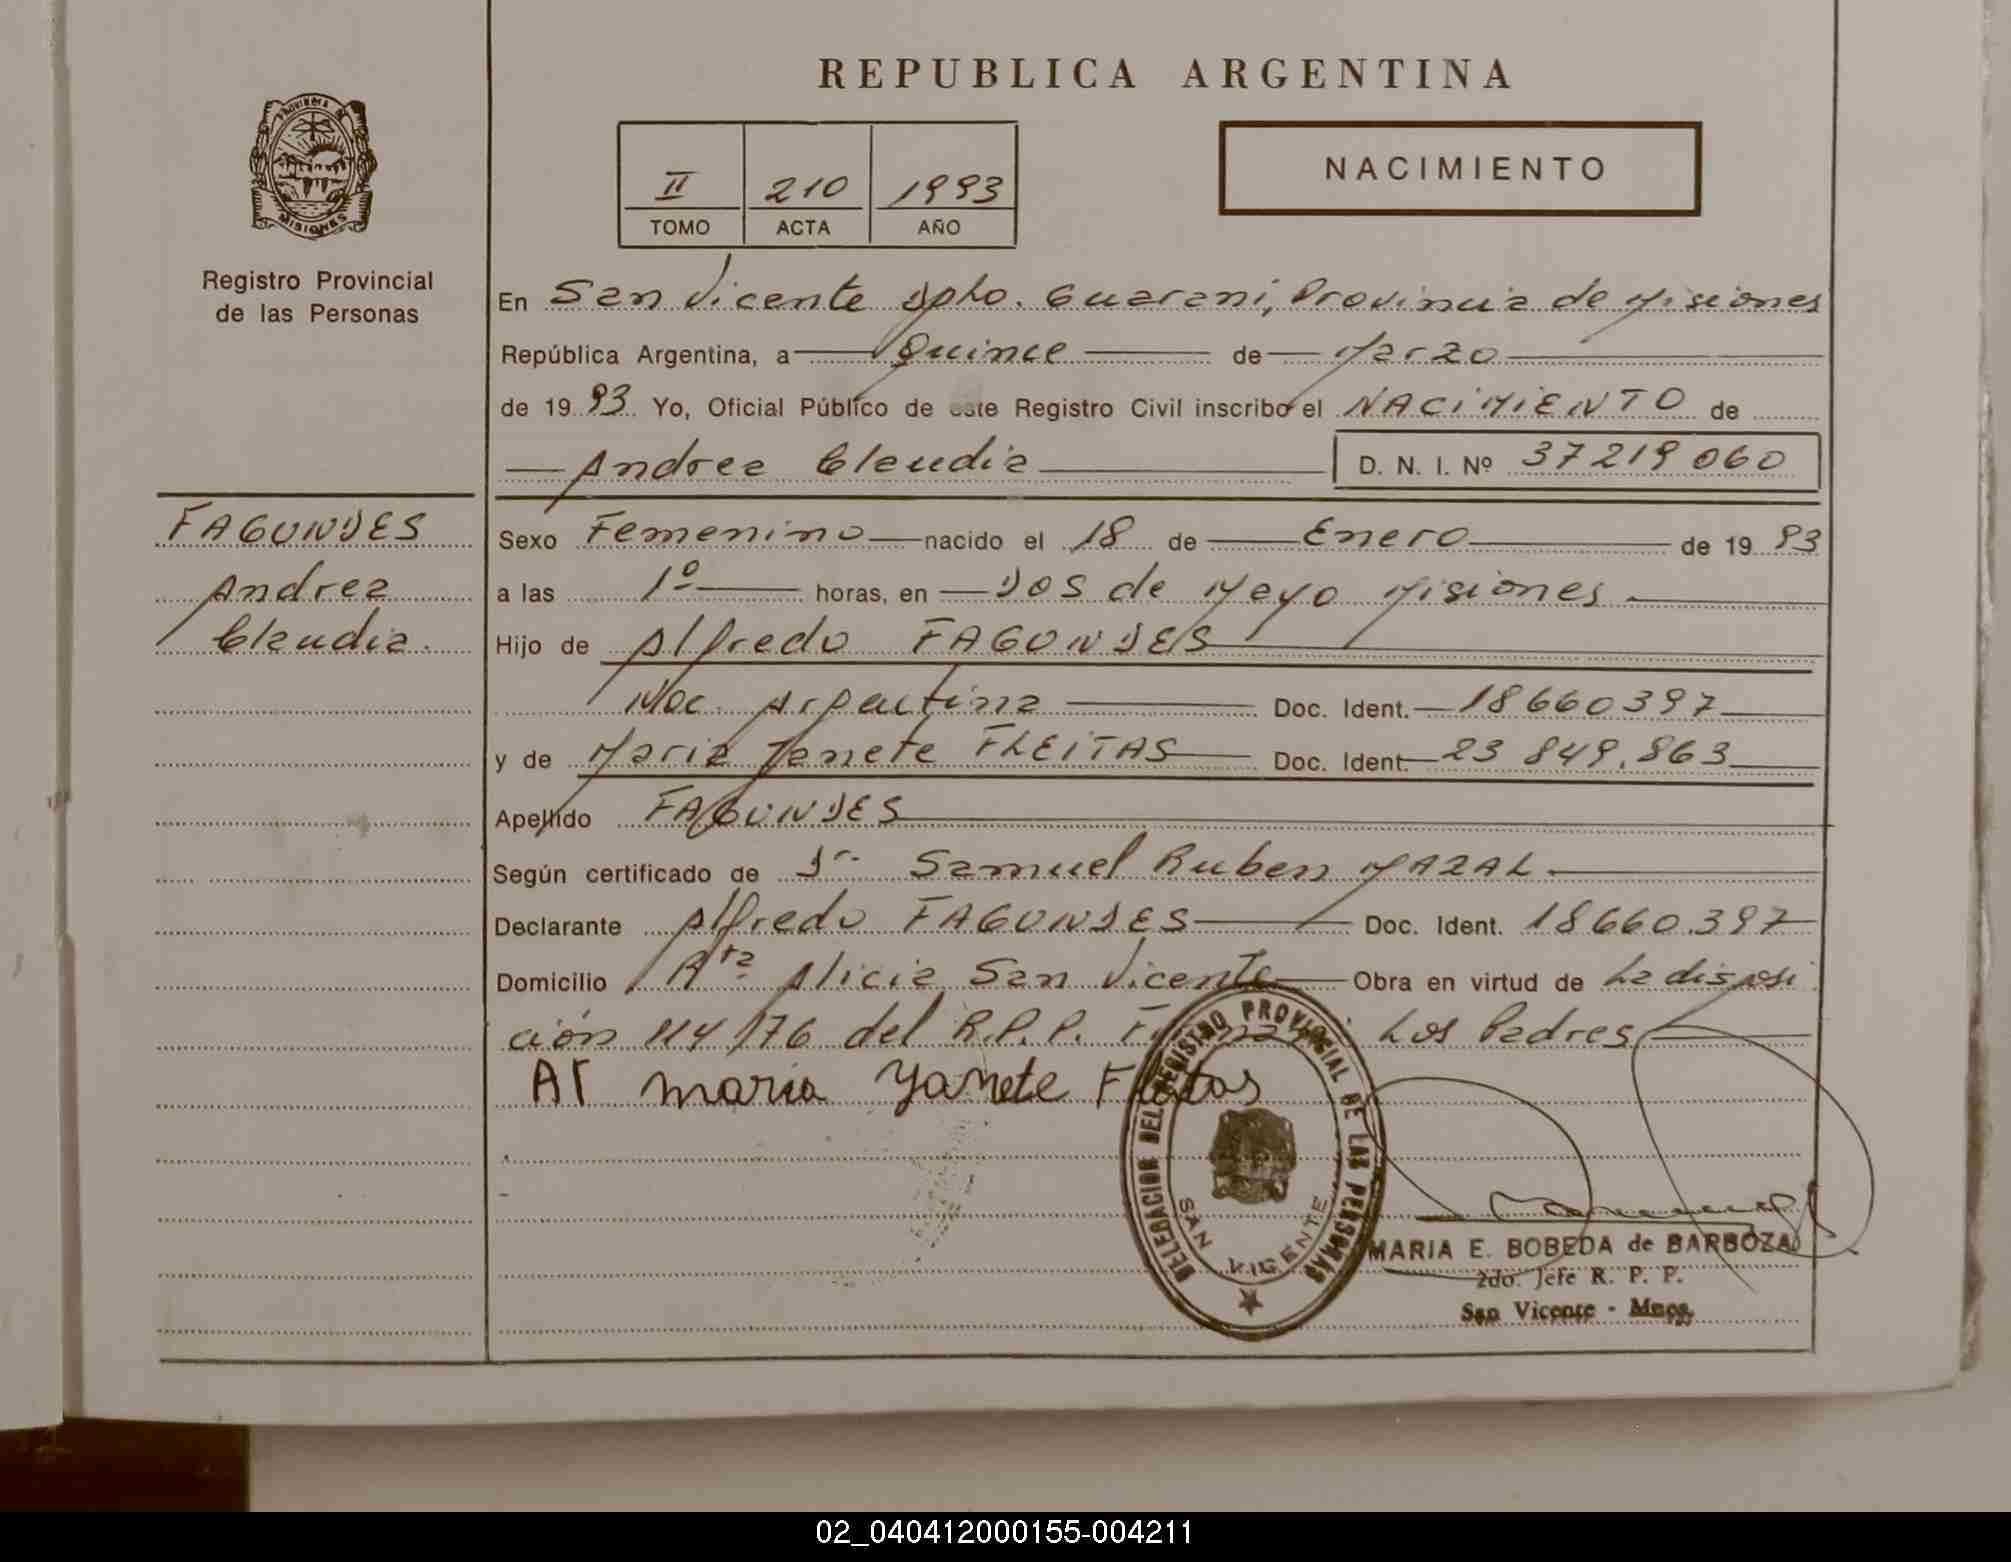 REPUBLICA ARGENTINA
PROVINCIA DE
MISIONES
Registro Provincial
de las Personas
II 210 1993
TOMO ACTA AÑO
NACIMIENTO
En San Vicente Dpto. Guarani, Provincia de Misiones
República Argentina, a Quince de Marzo
de 1993 Yo, Oficial Público de este Registro Civil inscribo el NACIMIENTO de
Andrea Claudia D. N. I. Nº 37219060
FAGUNDES
Andrea
Claudia.
Sexo Femenino nacido el 18 de Enero de 1993
a las 1º horas, en Dos de Mayo Misiones
Hijo de Alfredo FAGUNDES
Nac. Argentina Doc. Ident. 18660397
y de Maria Janete FLEITAS Doc. Ident. 23 849.863
Apellido FAGUNDES
Según certificado de Dr. Samuel Ruben MAZAL
Declarante Alfredo FAGUNDES Doc. Ident. 18660.397
Domicilio Rta Alicia San Vicente Obra en virtud de La disposi
ción 114/76 del R.P.P. Los Padres
AF maria Yanete Fleitas
DELEGACION DEL REGISTRO PROVINCIAL DE LAS PERSONAS
SAN VICENTE
MARIA E. BOBEDA de BARBOZA
2do. Jefe R. P. P.
San Vicente - Mnes.
02_040412000155-004211